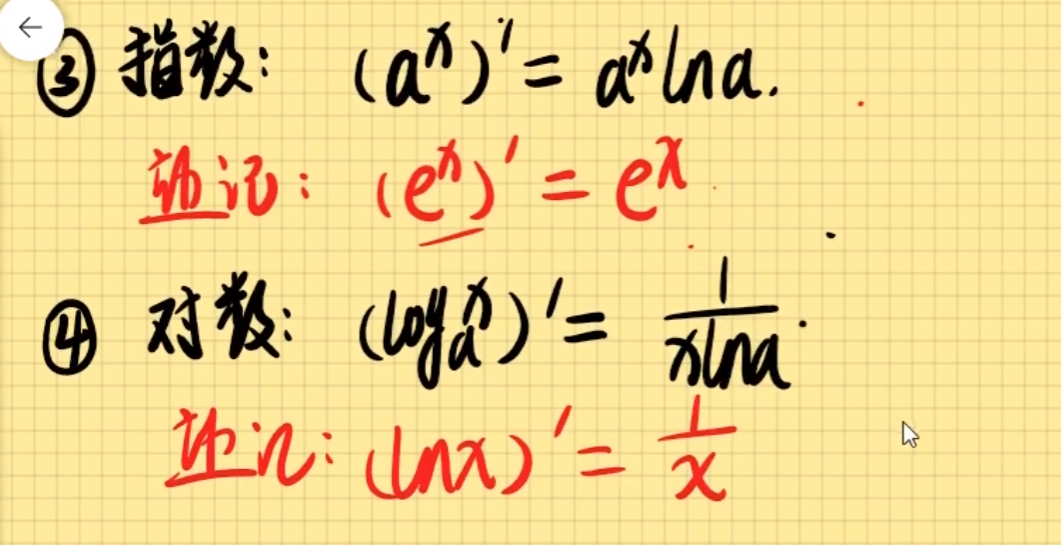 ③ 指数: (aˣ)' = aˣlna.
记: (eˣ)' = eˣ
④ 对数: (logₐx)' = 1/(xlna)
记: (lnx)' = 1/x